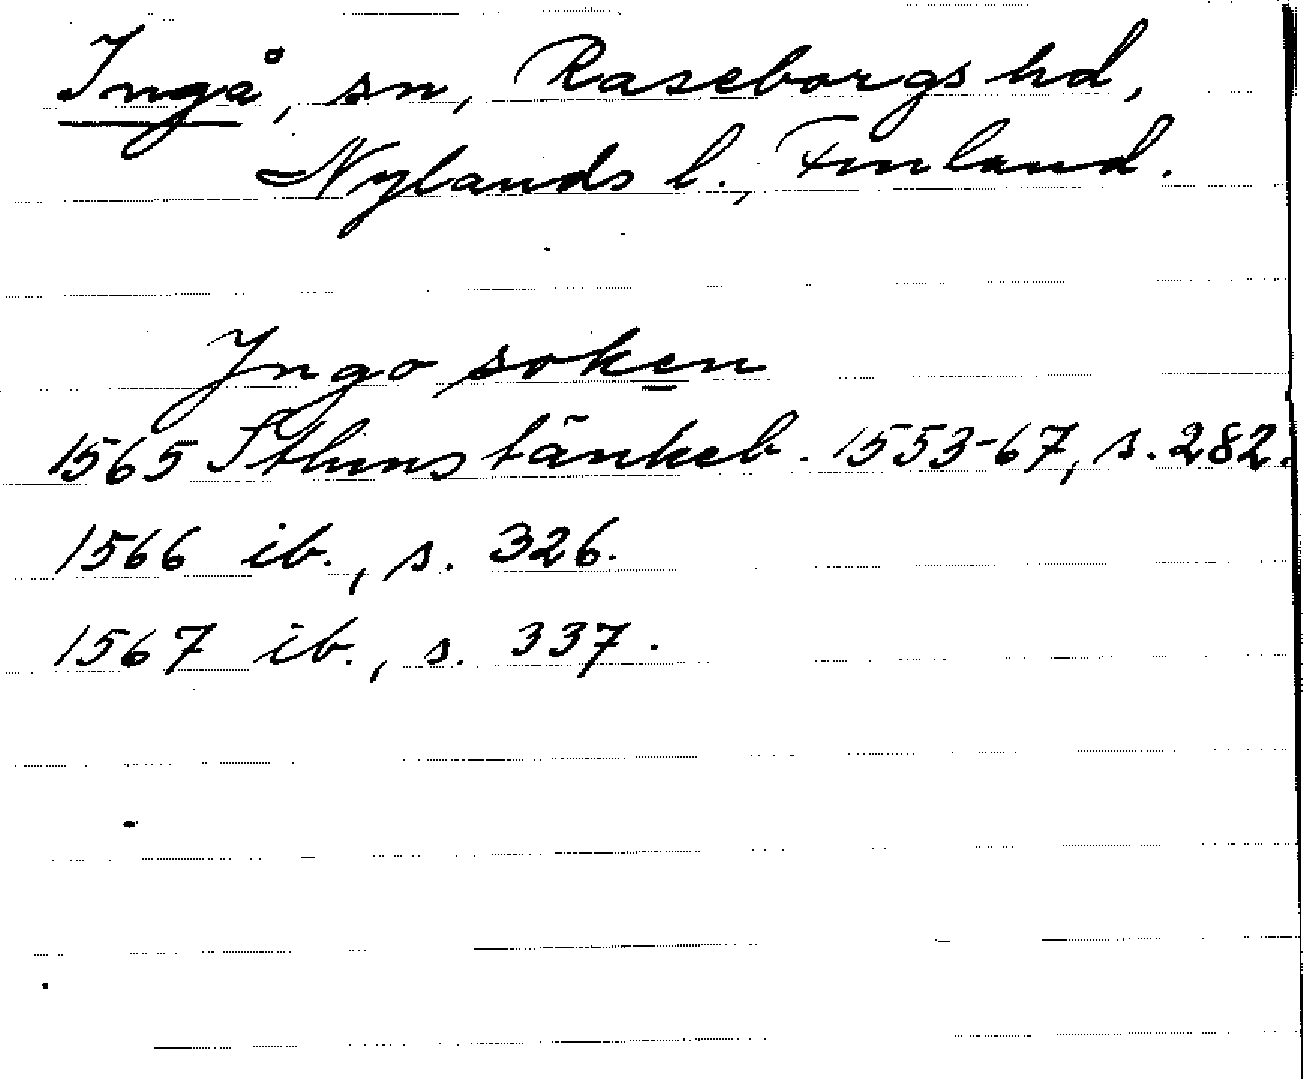 Ingå, sn, Raseborgs hd,
Nylands l., Finland.
Jngo soken
1565 Sthms tänkeb. 1553-67, s. 282.
1566 ib., s. 326.
1567 ib., s. 337.